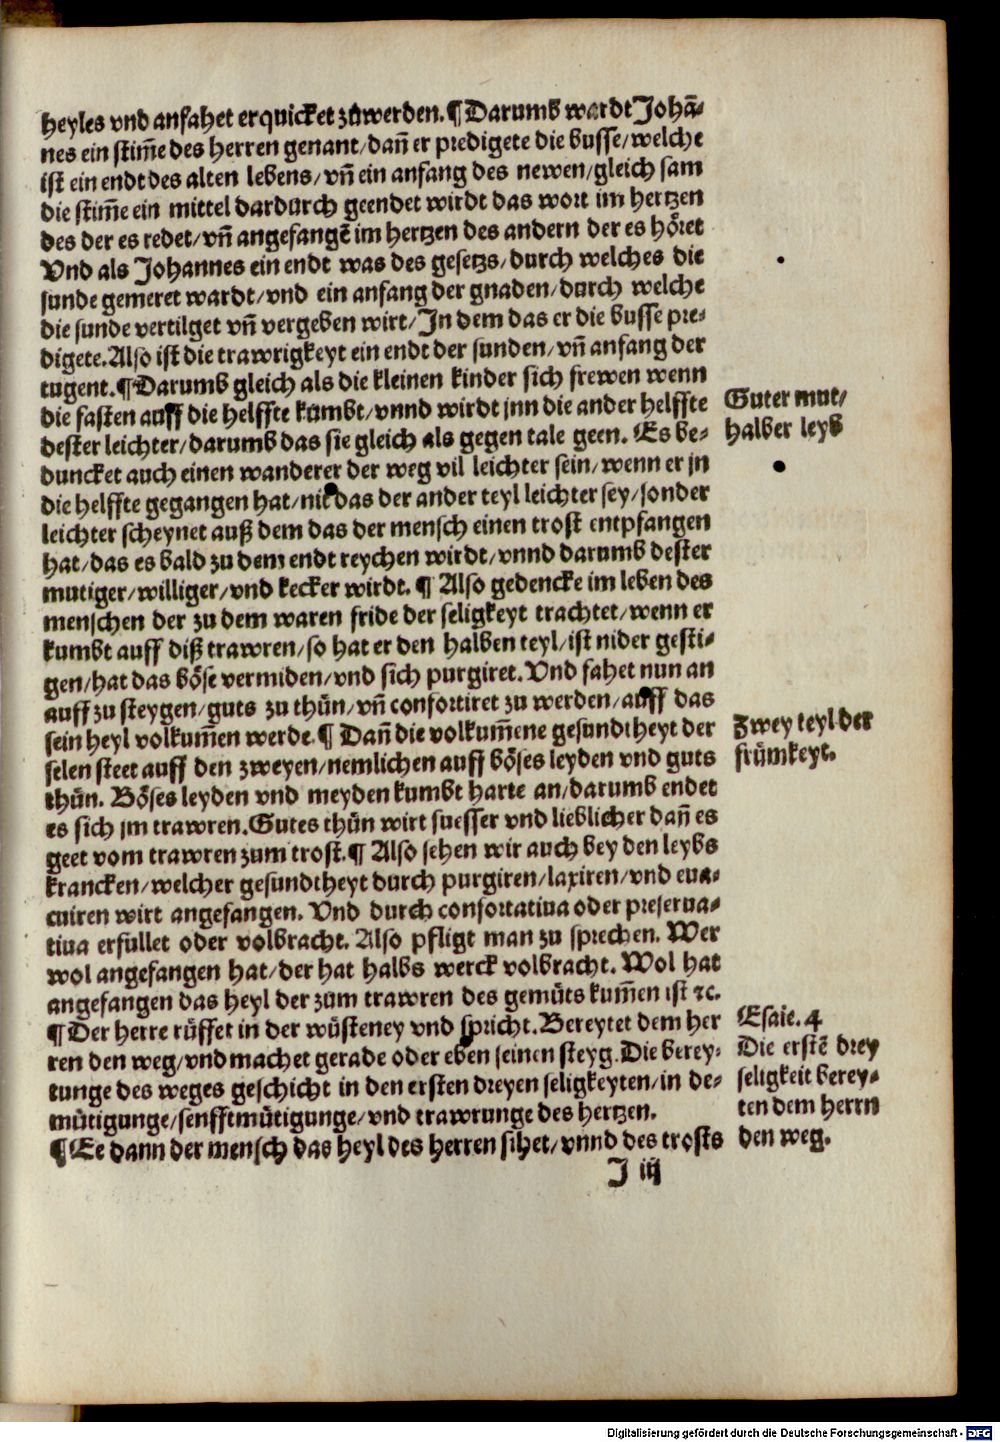 heyles vnd anfahet erquicket zůwerden.¶Darumb wardt Johā⸗
nes ein stim̄e des herren genant/dañ er predigete die busse/welche
ist ein endt des alten lebens/vñ ein anfang des newen/gleich sam
die stim̄e ein mittel dardurch geendet wirdt das wort im hertzen
des der es redet/vñ angefangē im hertzen des andern der es höret
Vnd als Johannes ein endt was des gesetzs/durch welches die
sunde gemeret wardt/vnd ein anfang der gnaden/durch welche
die sunde vertilget vñ vergeben wirt/In dem das er die busse pre⸗
digete.Also ist die trawrigkeyt ein endt der sunden/vñ anfang der
tugent.¶Darumb gleich als die kleinen kinder sich frewen wenn
die fasten auff die helffte kumbt/vnnd wirdt jnn die ander helffte
dester leichter/darumb das sie gleich als gegen tale geen. Es be⸗
duncket auch einen wanderer der weg vil leichter sein/wenn er jn
die helffte gegangen hat/nit das der ander teyl leichter sey/sonder
leichter scheynet auß dem das der mensch einen trost entpfangen
hat/das es bald zu dem endt reychen wirdt/vnnd darumb dester
mutiger/williger/vnd kecker wirdt.¶ Also gedencke im leben des
menschen der zu dem waren fride der seligkeyt trachtet/wenn er
kumbt auff diß trawren/so hat er den halben teyl/ist nider gesti⸗
gen/hat das böse vermiden/vnd sich purgiret.Vnd fahet nun an
auff zu steygen/guts zu thůn/vñ confortiret zu werden/auff das
sein heyl volkum̄en werde.¶ Dañ die volkum̄ene gesundtheyt der
selen steet auff den zweyen/nemlichen auff böses leyden vnd guts
thůn. Böses leyden vnd meyden kumbt harte an/darumb endet
es sich jm trawren.Gutes thůn wirt suesser vnd lieblicher dañ es
geet vom trawren zum trost.¶ Also sehen wir auch bey den leybs
krancken/welcher gesundtheyt durch purgiren/laxiren/vnd eua⸗
cuiren wirt angefangen. Vnd durch confortatiua oder preserua⸗
tiua erfullet oder volbracht. Also pfligt man zu sprechen. Wer
wol angefangen hat/der hat halbs werck volbracht. Wol hat
angefangen das heyl der zům trawren des gemůts kum̄en ist ꝛc.
¶Der herre růffet in der wůsteney vnd spricht.Bereytet dem her
ren den weg/vnd machet gerade oder eben seinen steyg.Die berey⸗
tunge des weges geschicht in den ersten dreyen seligkeyten/in de⸗
můtigunge/senfftmůtigunge/vnd trawrunge des hertzen.
¶Ee dann der mensch das heyl des herren sihet/vnnd des trosts
J iij
Guter mut/
halber leyb
Zwey teyl der
frům̄keyt.
Esaie. 4
Die erstē drey
seligkeit berey⸗
ten dem herrn
den weg.
Digitalisierung gefördert durch die Deutsche Forschungsgemeinschaft - DFG